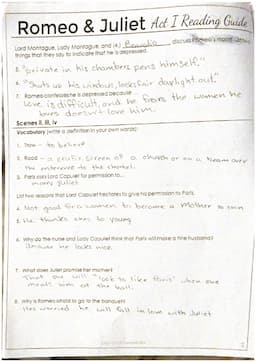 Romeo & Juliet Act I Reading Guide
Lord Montague, Lady Montague, and (4.) Benvolio discuss Romeo's
things that they say to indicate that he is depressed.
5. "private in his chambers pens himself."
6. "Shuts up his windows, locks fair daylight out."
7. Romeo confesses he is depressed because
love is difficult, and he the women he
loves doesn't love him.
Scenes II, III, IV
Vocabulary (write a definition in your own words)
1. Trow - to believe
2. Rood - a crucifix, screen of a church or on a beam over
the enterence to the chancel.
3. Paris asks Lord Capulet for permission to...
marry juliet
List two reasons that Lord Capulet hesitates to give his permission to Paris.
4. Not good for a women to become a mother to soon
5. He thinks shes to young
6. Why do the nurse and Lady Capulet think that Paris will make a fine husband?
because he looks nice.
7. What does Juliet promise her mother?
That she will "look to like Paris" when she
meets him at the ball.
8. Why is Romeo afraid to go to the banquet?
Hes worried he will fall in love with Juliet